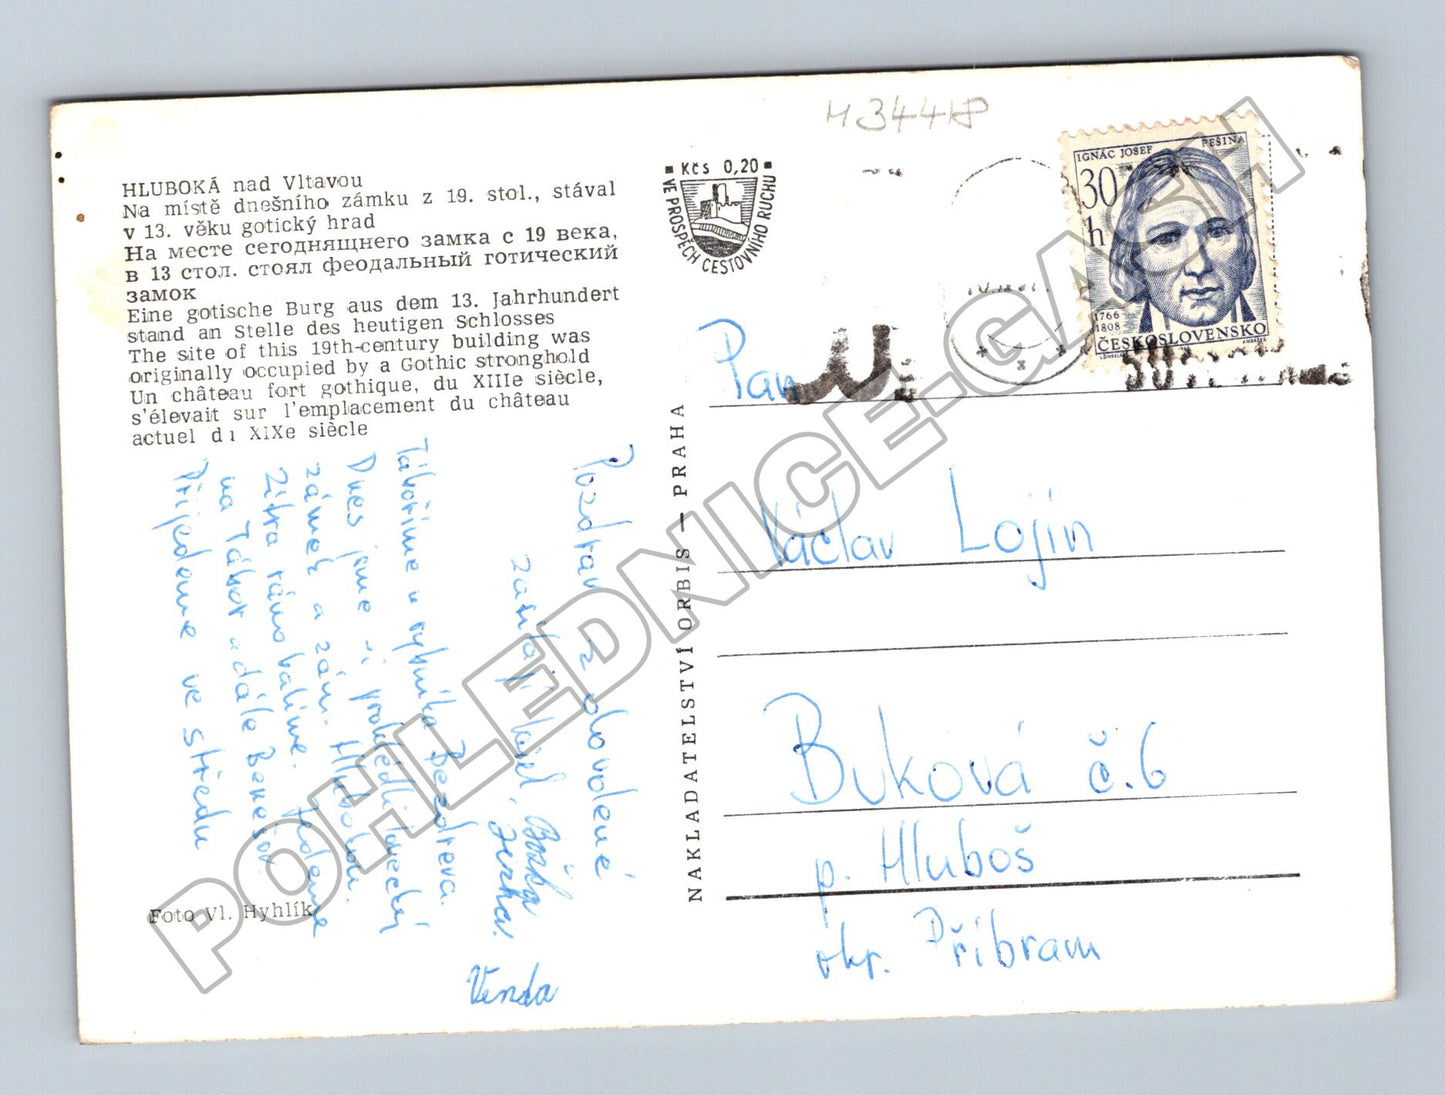 M 34418
HLUBOKÁ nad Vltavou
Na místě dnešního zámku z 19. stol., stával
v 13. věku gotický hrad
На месте сегоднящнего замка с 19 века,
в 13 стол. стоял феодальный готический
замок
Eine gotische Burg aus dem 13. Jahrhundert
stand an Stelle des heutigen Schlosses
The site of this 19th-century building was
originally occupied by a Gothic stronghold
Un château fort gothique, du XIIIe siècle,
s'élevait sur l'emplacement du château
actuel du XIXe siècle
Kčs 0,20
VE PROSPĚCH CESTOVNÍHO RUCHU
IGNÁC JOSEF PEŠINA
30
h
1766
1808
ČESKOSLOVENSKO
Pozdrav z dovolené
zasílají
Božka
Venda
Táboříme u rybníka Bezdreva.
Dnes jsme si prohlédli lovecký
zámek a zám. Hlubokou.
Zítra ráno balíme. Jedeme
na Tábor a dále Benešov.
Přijedeme ve středu
Foto Vl. Hyhlík
NAKLADATELSTVÍ ORBIS — PRAHA
Pan
Václav Lojin
Buková č.6
p. Hluboš
okr. Příbram
POHLEDNICE-GACH